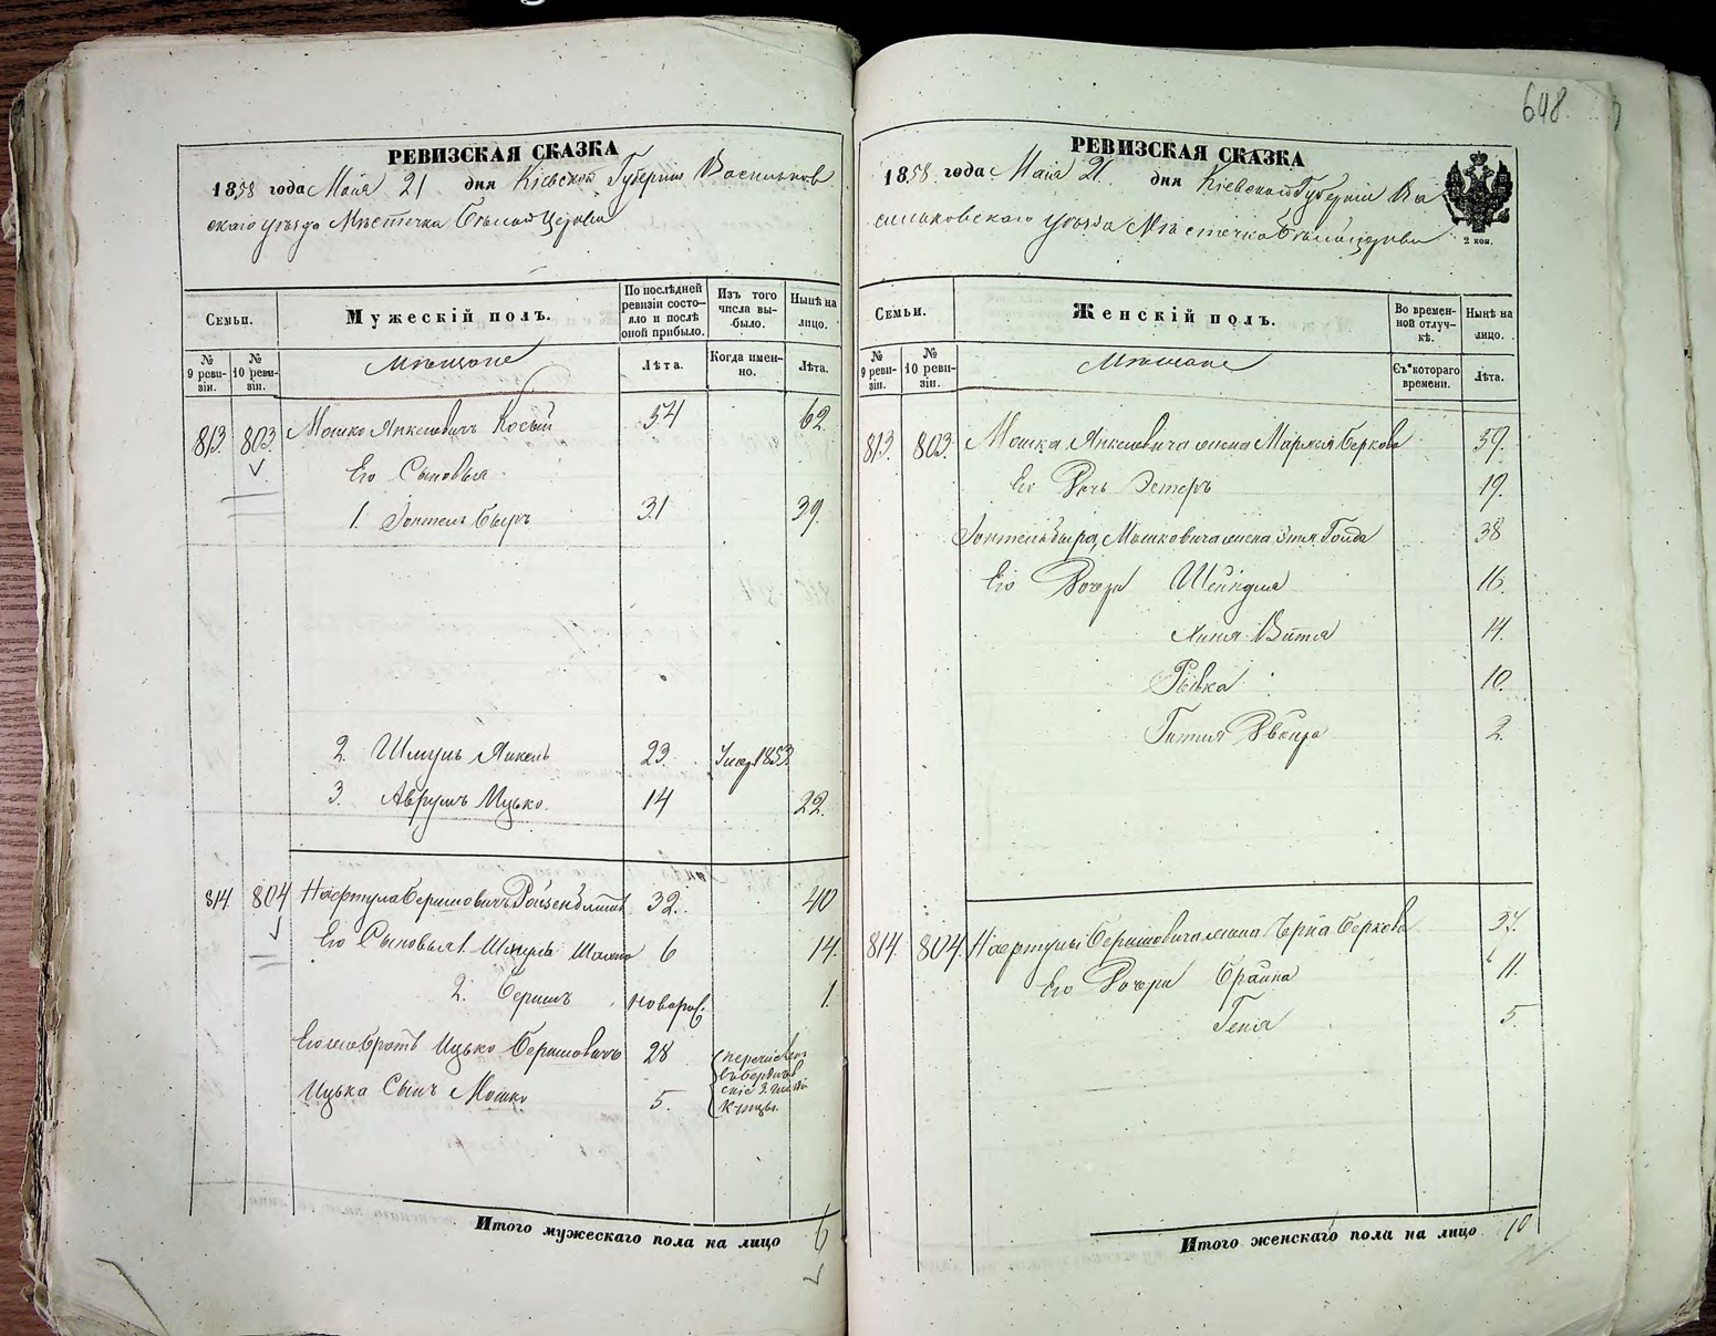 648.
РЕВИЗСКАЯ СКАЗКА
1858 года Мая 21 дня Кіевской Губерніи Васильков
скаго уѣзда Мѣстечка Бѣлой Церкви
Семьи.
Мужескій полъ.
По послѣдней ревизіи состо-
яло и послѣ
оной прибыло.
Изъ того
числа вы-
было.
Нынѣ на
лицо.
№
9 реви-
зіи.
№
10 реви-
зіи.
Мѣщане
Лѣта.
Когда имен-
но.
Лѣта.
813. 803. Мошко Янкелевичъ Косый 54 62.
Его Сыновья
1. Зонтель Быръ 31 39.
2. Шмуль Янкель 23. Умер. 1853.
3. Аврумъ Ицько. 14 22.
814 804 Нафтула Беришовичъ 32. 40
Его Сыновья 1. Шмуль 6 14.
2. Беришъ новорож. 1.
Его же братъ Ицько Беришовичъ 28
Ицька Сынъ Мошко 5.
перечислен
въ Бердичев
скіе 3. Гильдіи
Купцы.
Итого мужескаго пола на лицо 6
РЕВИЗСКАЯ СКАЗКА
1858 года Мая 21 дня Кіевской Губерніи Ва
сильковскаго уѣзда Мѣстечка Бѣлой церкви
2 коп.
Семьи.
Женскій полъ.
Во времен-
ной отлуч-
кѣ.
Нынѣ на
лицо.
№
9 реви-
зіи.
№
10 реви-
зіи.
Мѣщане
Съ котораго
времени.
Лѣта.
813. 803. Мошка Янкелевича жена Марьмя Беркова 59.
Его Дочь Эстеръ 19.
Зонтель Быра Мошковича жена Этя Голда 38
Его Дочери Шейндля 16.
Витля 14.
Рывка 10.
Гитля Двойра 2.
814. 804. Нафтулы Беришовича жена Черна Беркова 37.
Его Дочери Брайна 11.
Геня 5.
Итого женскаго пола на лицо 10